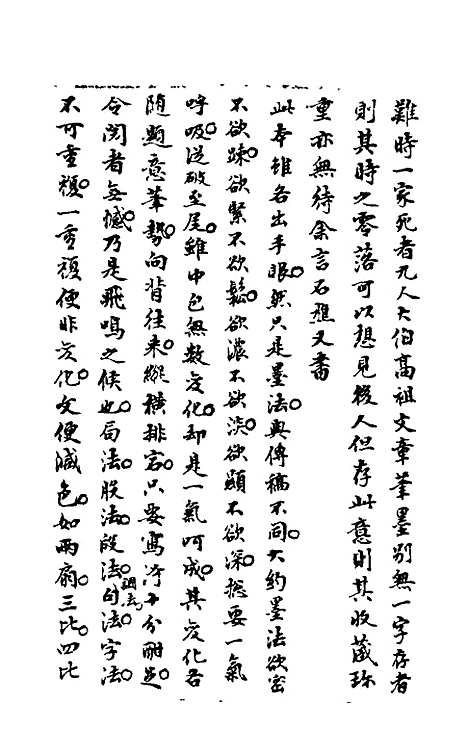 難時一家死者九人大伯高祖文章筆墨別無一字存者
則其時之零落可以想見後人但存此意則其收藏珍
重亦無待余言石樵又書
此本雖各出手眼然只是墨法與傳稿不同大約墨法欲密
不欲疎欲緊不欲鬆欲濃不欲淡欲顯不欲深總要一氣
呼吸從破至尾雖中包無數變化却是一氣呵成其變化各
隨題意筆勢向背往來縱橫排宕只要寫得十分酣足
令閱者無憾乃是飛鳴之候也局法股法段法句法字法
不可重複一重複便非變化文便減色如兩扇三比四比